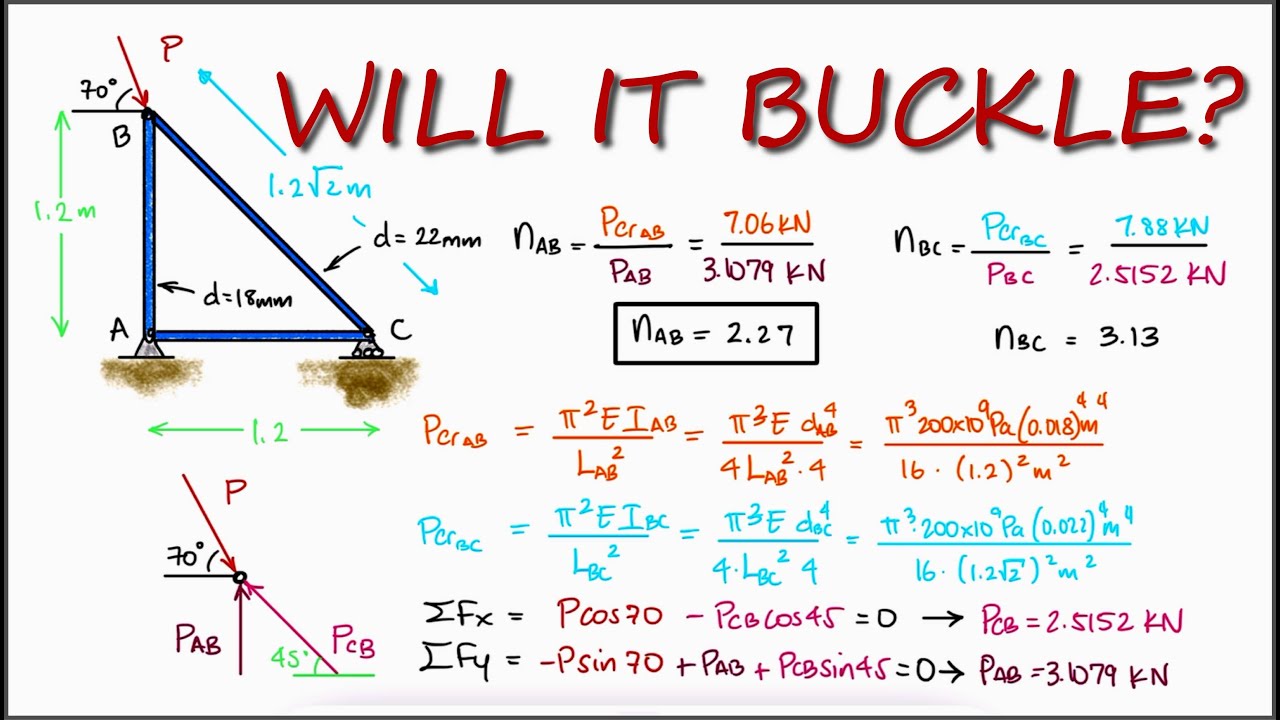 WILL IT BUCKLE?
P
70°
B
1.2 m
1.2√2 m
d = 22mm
d=18mm
A
C
1.2
n_AB = Pcr_AB / P_AB = 7.06 KN / 3.1079 KN
n_BC = Pcr_BC / P_BC = 7.88 KN / 2.5152 KN
n_AB = 2.27
n_BC = 3.13
Pcr_AB = π² E I_AB / L_AB² = π³ E d_AB⁴ / 4 L_AB² · 4 = π³ 200x10⁹ Pa (0.018)⁴ m⁴ / 16 · (1.2)² m²
Pcr_BC = π² E I_BC / L_BC² = π³ E d_BC⁴ / 4 · L_BC² 4 = π³ · 200x10⁹ Pa (0.022)⁴ m⁴ / 16 · (1.2√2)² m²
P
70°
P_AB
P_CB
45°
ΣFx = Pcos70 - P_CB cos45 = 0 → P_CB = 2.5152 KN
ΣFy = -Psin70 + P_AB + P_CB sin45 = 0 → P_AB = 3.1079 KN